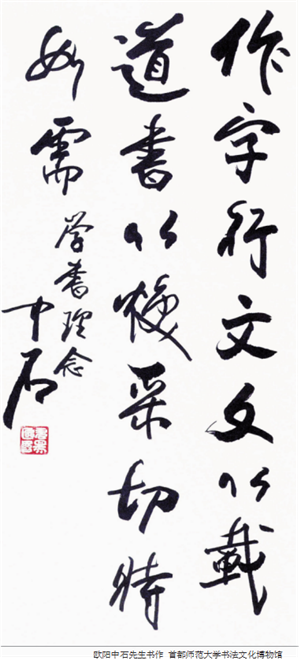 作字行文文以載
道書以煥采切時
如需
学書理念
中石
欧阳中石先生书作 首都师范大学书法文化博物馆